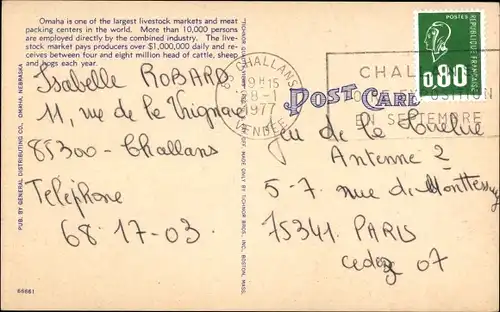 Omaha is one of the largest livestock markets and meat
packing centers in the world. More than 10,000 persons
are employed directly by the combined industry. The live-
stock market pays producers over $1,000,000 daily and re-
ceives between four and eight million head of cattle, sheep
and hogs each year.
Isabelle ROBARD
11, rue de la Vrignais
85300 - Challans
Téléphone
68-17-03.
PUB. BY GENERAL DISTRIBUTING CO., OMAHA, NEBRASKA
66661
MADE ONLY BY TICHNOR BROS., INC., BOSTON, MASS.
POST CARD
85 CHALLANS
9H15
8-1
1977
VENDEE
CHAL
EXPOSITION
EN SEPTEMBRE
POSTES
0,80
REPUBLIQUE FRANÇAISE
Jeu de la
Antenne 2
5-7, rue de Montessuy
75341 PARIS
cedex 07